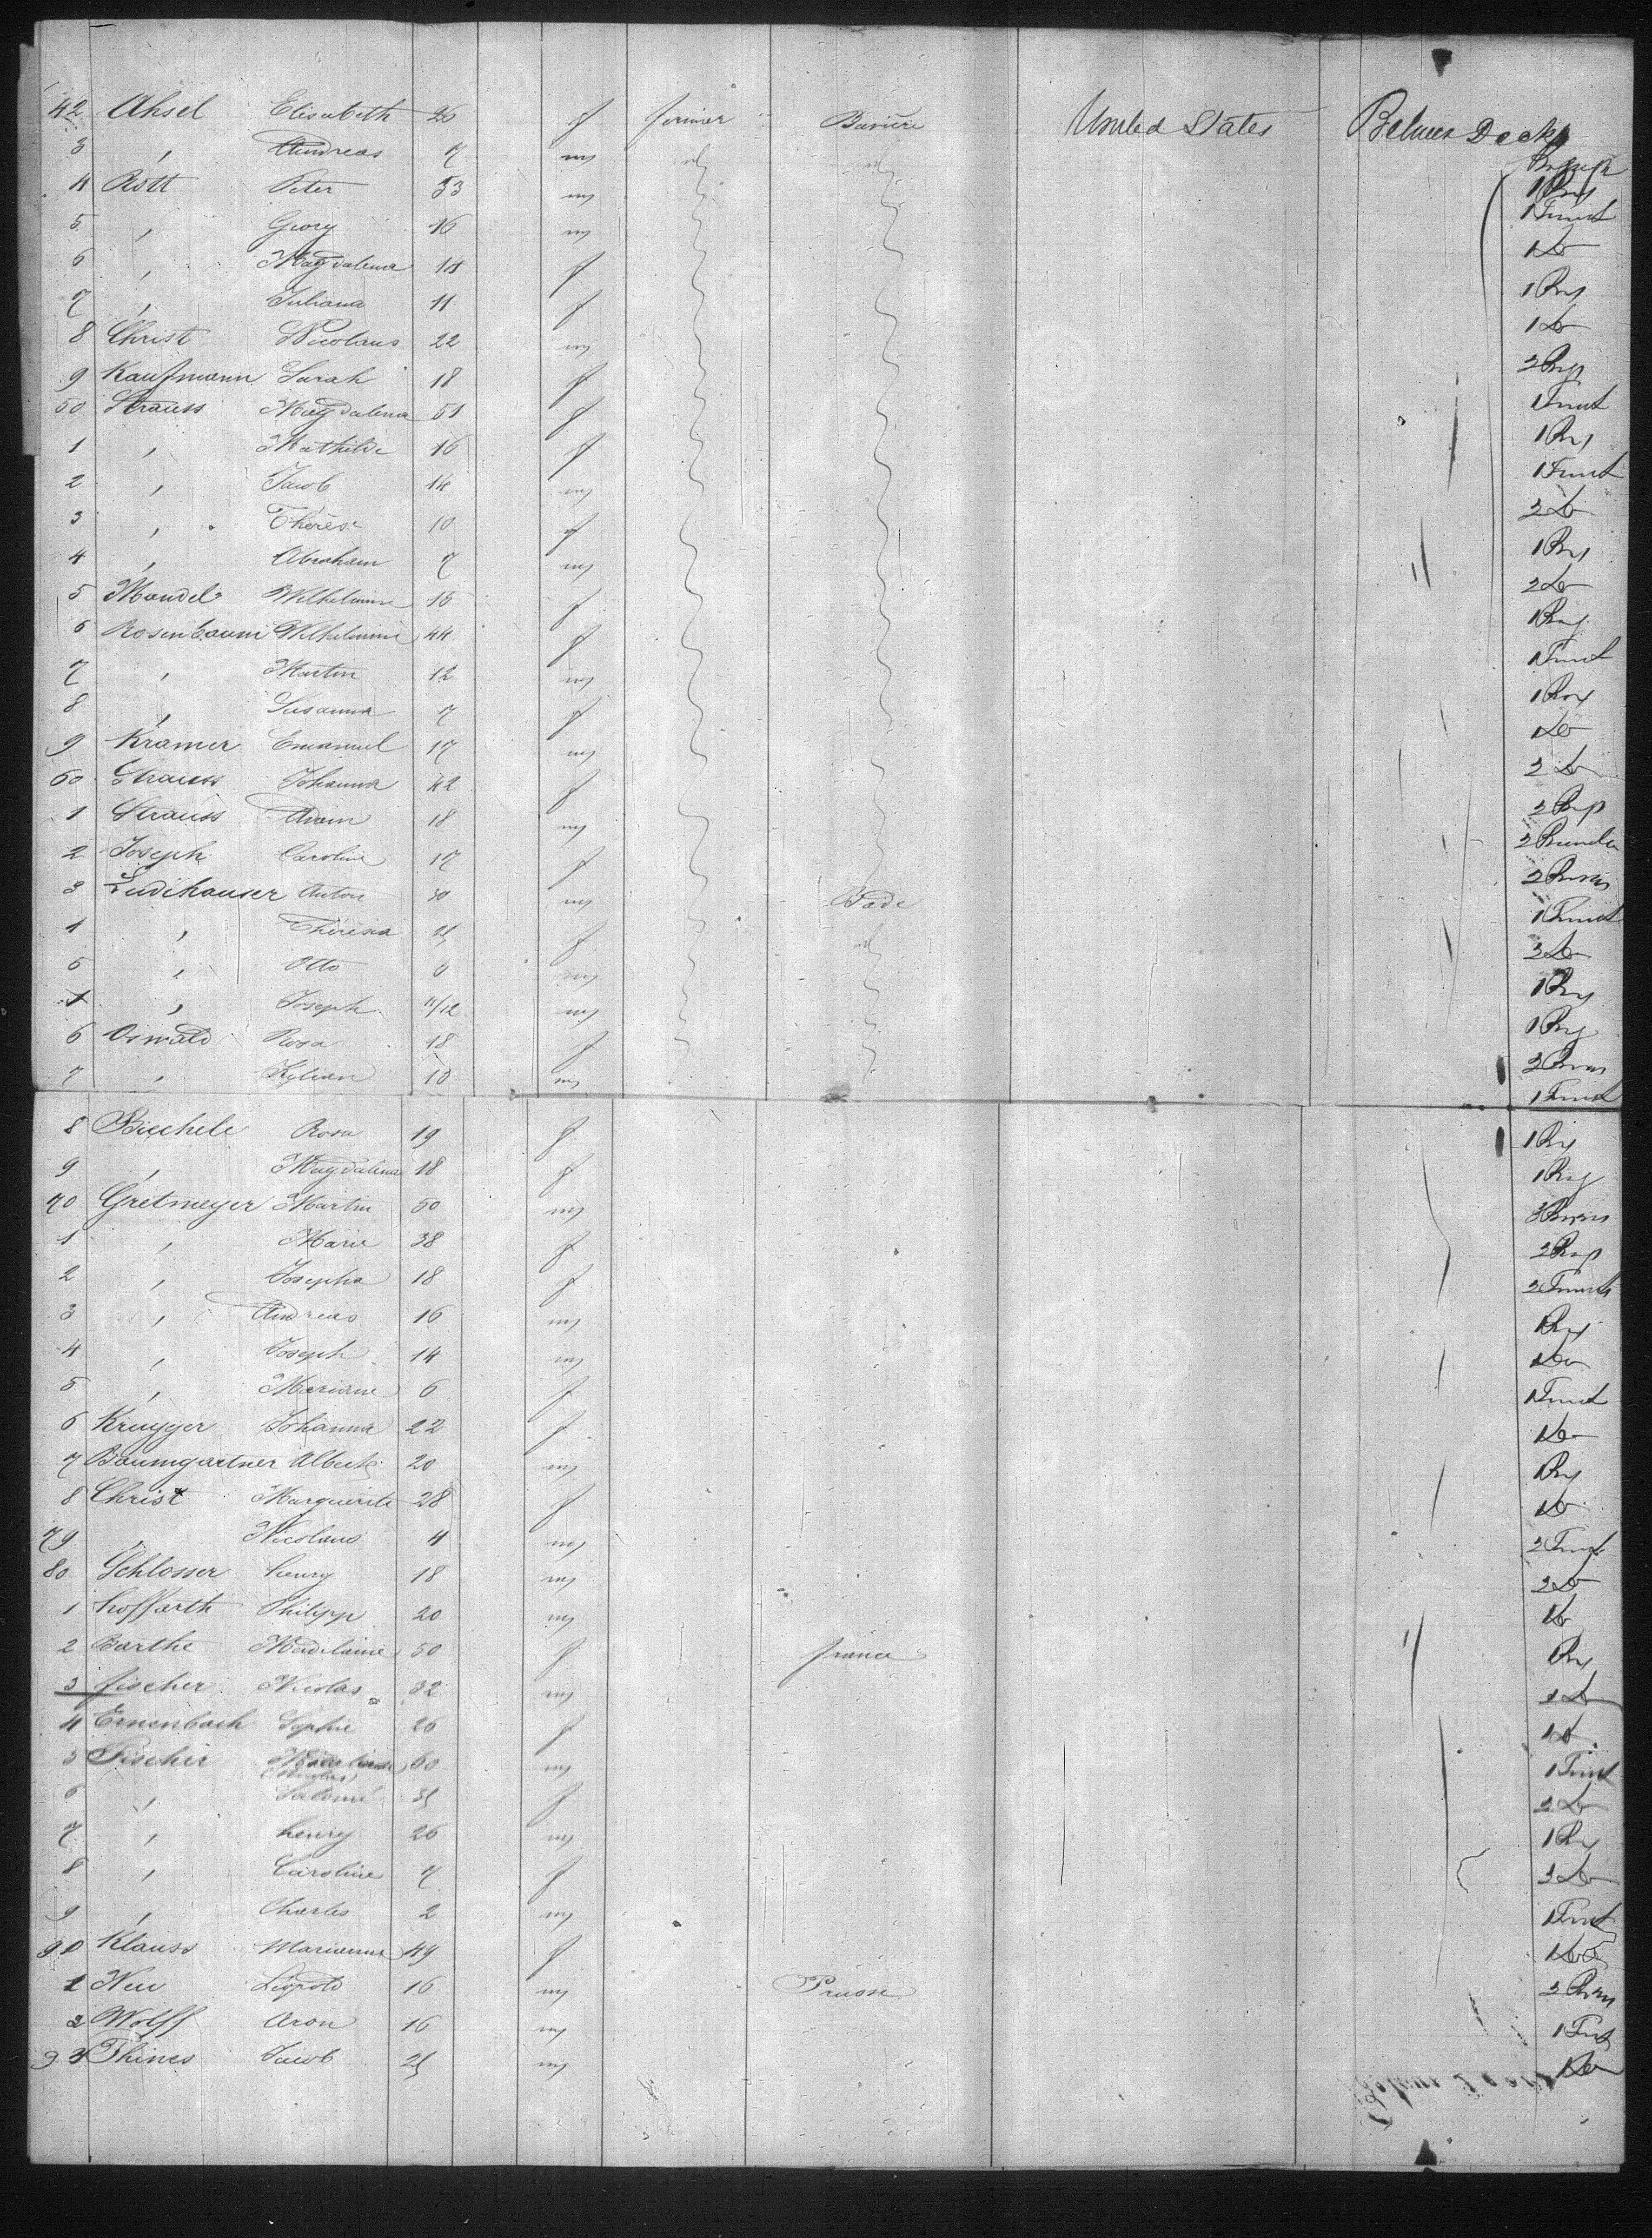 42 Ahsel Elisabeth 26 f fermier Bavière United States Between Decks
3 , Andreas 7 m id id
4 Rott Peter 33 m 1 Bag
5 , Georg 16 m 1 Trunk
6 , Magdalena 14 f 1 Do
7 , Juliana 11 f 1 Bag
8 Christ Nicolaus 22 m 1 Do
9 Kaufmann Sarah 18 f 2 Bgs
50 Strauss Magdalena 51 f 1 Trunk
1 , Mathilde 16 f 1 Bag
2 , Jacob 14 m 1 Trunk
3 , Therese 10 f 2 Do
4 , Abraham 7 m 1 Bag
5 Mandel Wilhelmine 15 f 2 Do
6 Rosenbaum Wilhelmine 44 f 1 Bag
7 , Martin 12 m 1 Trunk
8 , Susanna 7 f 1 Box
9 Kramer Emanuel 17 m 1 Do
60 Strauss Johanna 42 f 2 Do
1 Strauss Adam 18 m
2 Joseph Caroline 17 f
3 Ludihauser Anton 30 m Bade
4 , Thérésia f id 1 Trunk
5 , Otto 6 m 2 Do
1 , Joseph 11/12 m 1 Bag
6 Oswald Rosa 18 f 1 Bag
7 , Kilian 10 m
8 Biechele Rosa 19 f 1 Bag
9 , Magdalena 18 f 1 Bag
70 Gretmeyer Martin 50 m
1 , Marie 38 f
2 , Josepha 18 f 2 Trunks
3 , Andreas 16 m 1 Bag
4 , Joseph 14 m 1 Do
5 , Mariane 6 f 1 Trunk
6 Kruyger Johanna 22 f 1 Do
7 Baumgartner Albert 20 m 1 Bag
8 Christ Marguerite 28 f 1 Do
79 , Nicolaus 4 m
80 Schlosser henry 18 m 2 Do
1 hoffarth Philipp 20 m 1 Do
2 Barthe Madelaine 50 f france
3 fischer Nicolas 32 m 1 Do
4 Ernenbach Sophie 26 f 1 Do
5 Fischer 60 m 1 Trunk
6 , Salomé f 2 Do
7 , henry 26 m 1 Bag
8 , Caroline 7 f 2 Do
9 , Charles 2 m 1 Trunk
90 Klauss Marianna 49 f 1 Do
1 Neu Léopold 16 m Prusse
2 Wolff Aron 16 m
93 Thines Jacob m 1 Do